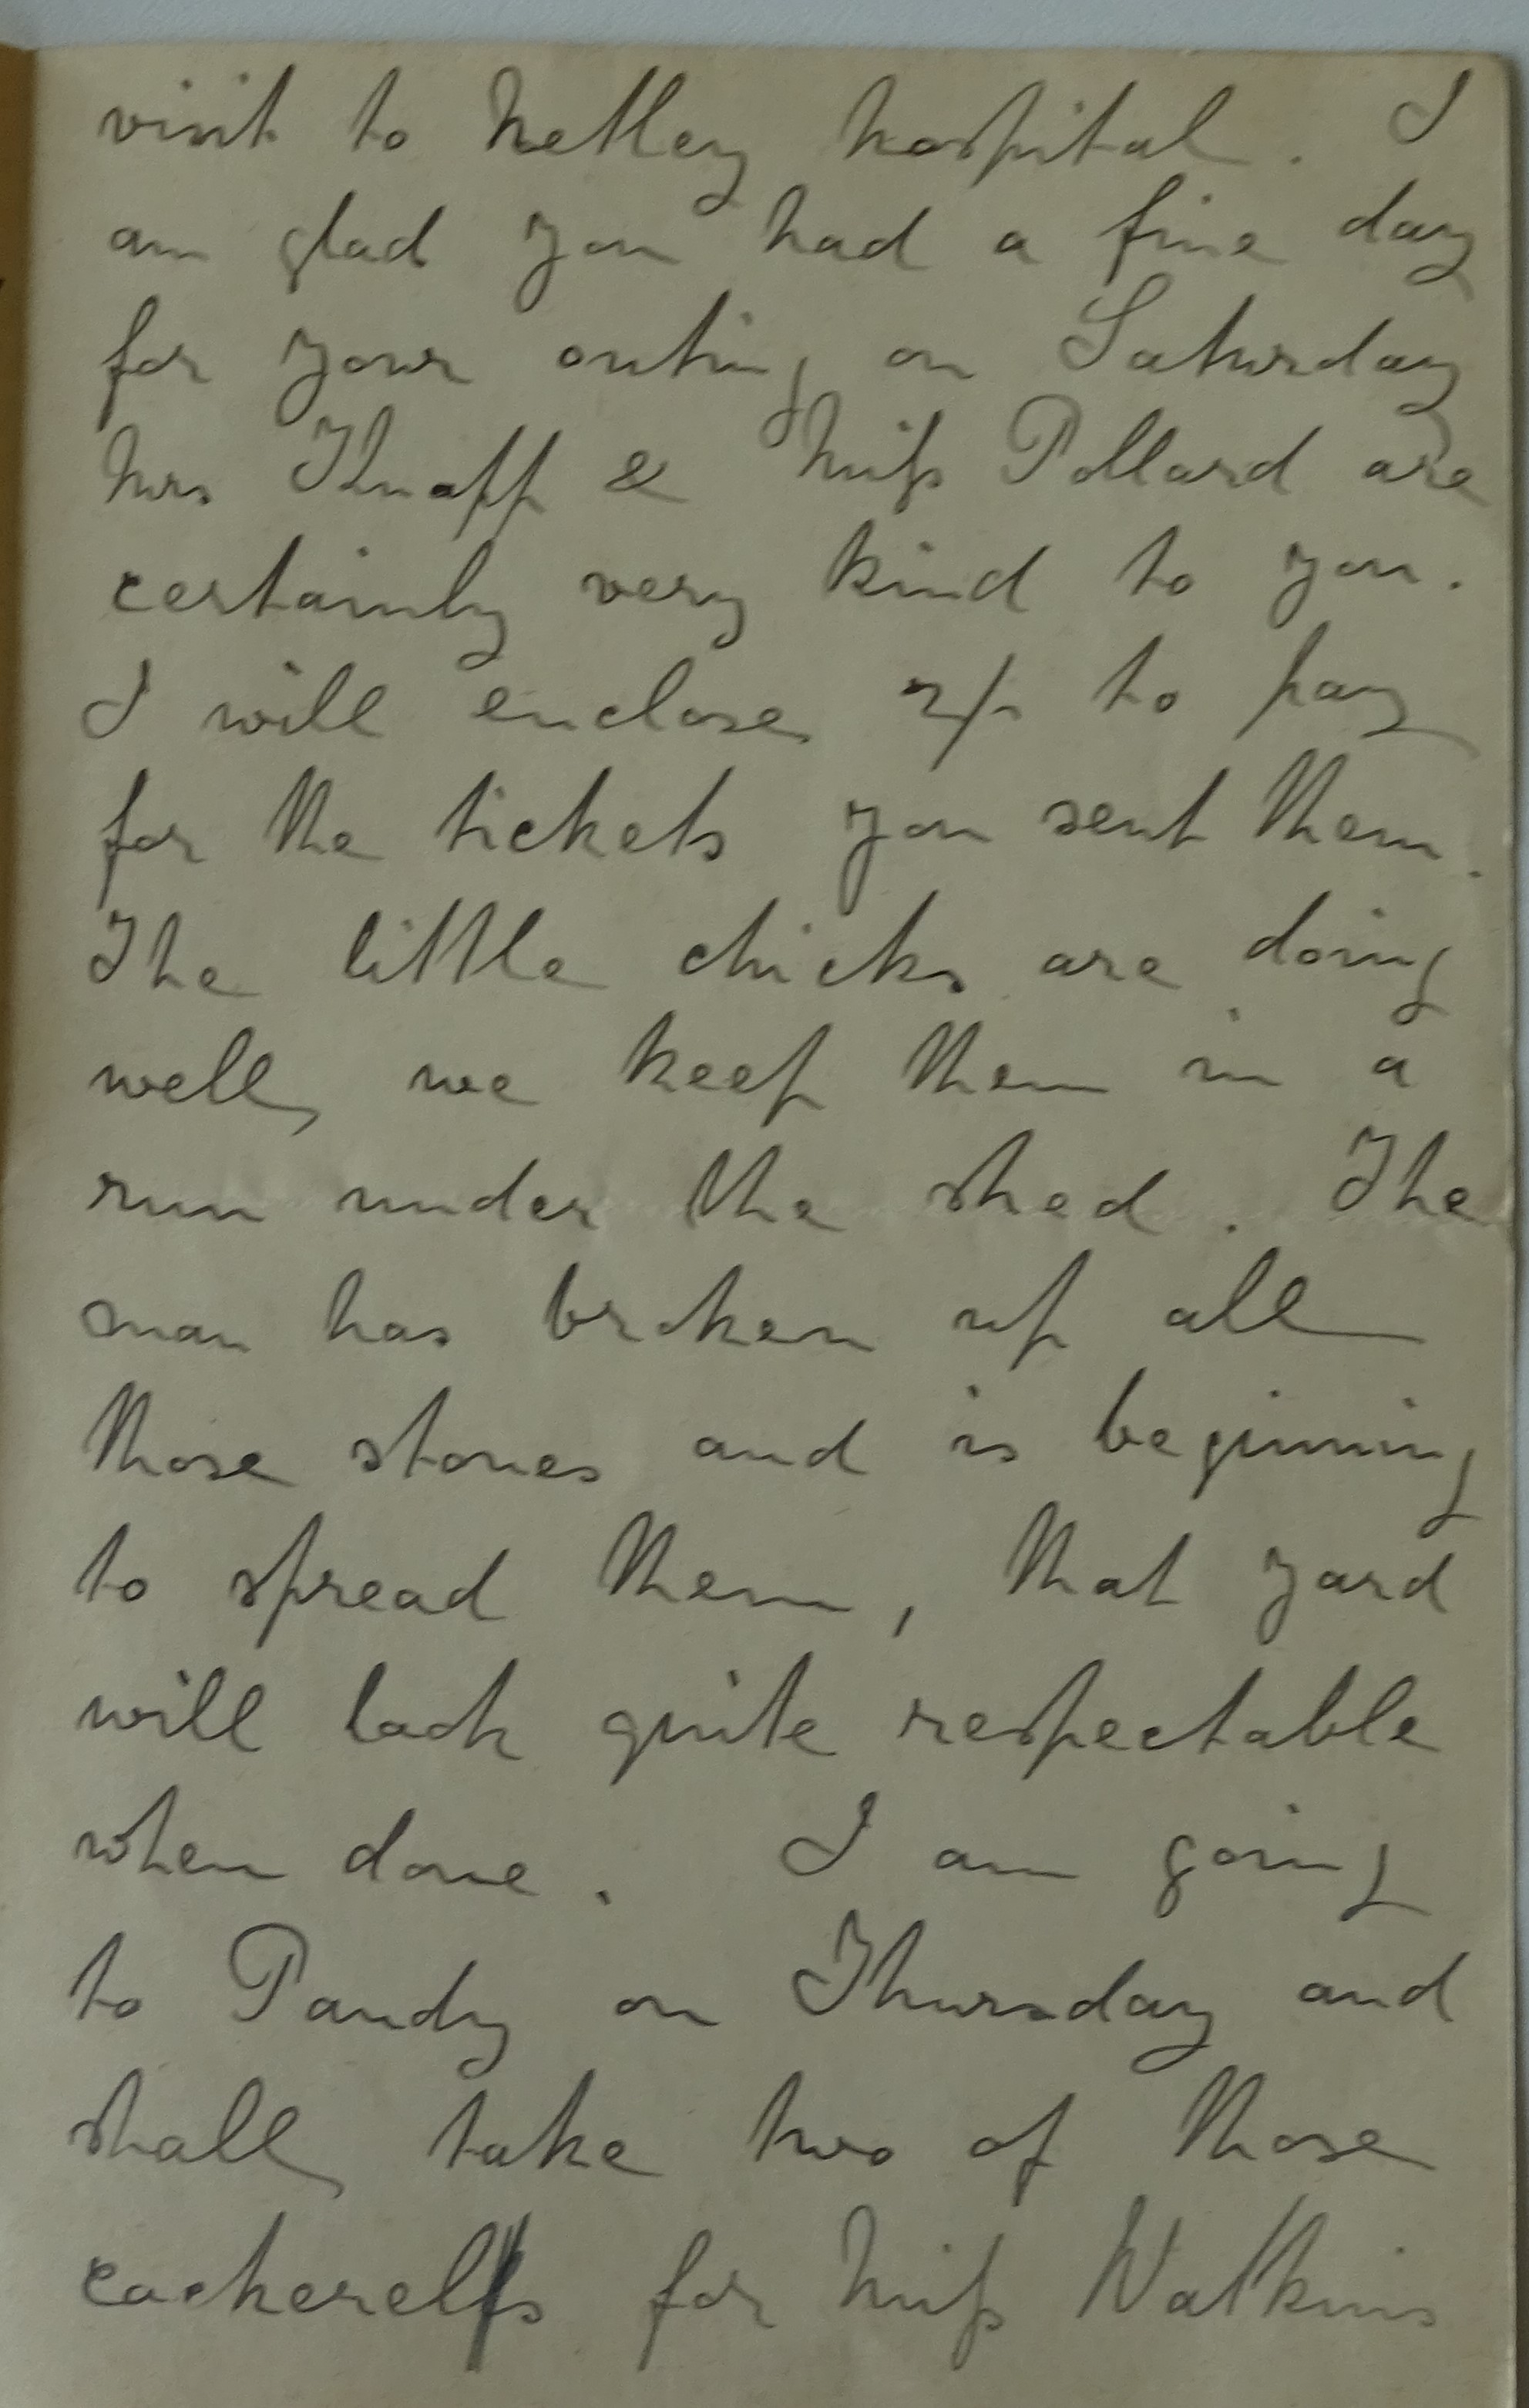 visit to Netley hospital. I
am glad you had a fine day
for your outing on Saturday
Mrs Knapp & Miss Pollard are
certainly very kind to you.
I will enclose 2/- to pay
for the tickets you sent them.
The little chicks are doing
well, we keep them in a
run under the shed. The
man has broken up all
those stones and is beginning
to spread them, that yard
will look quite respectable
when done. I am going
to Pandy on Thursday and
shall take two of those
cockerels for Miss Watkins